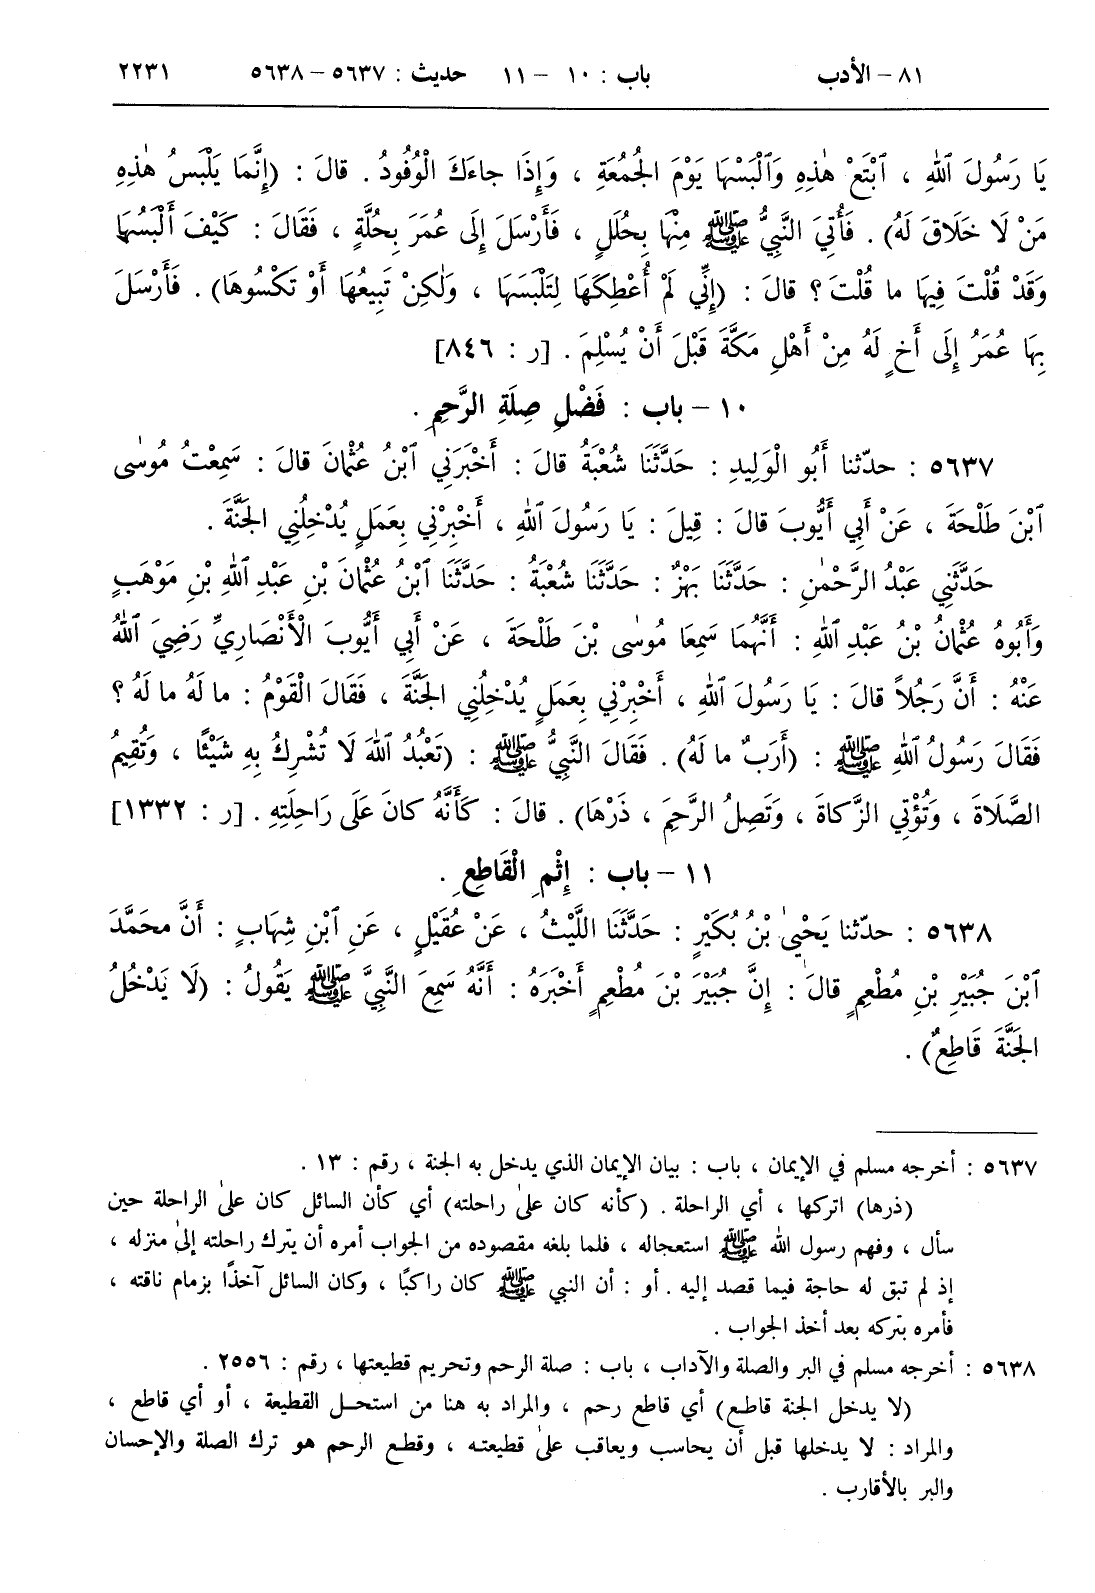 ٨١ – الأدب باب : ١٠ – ١١ حديث : ٥٦٣٧ – ٥٦٣٨ ٢٢٣١
يَا رَسُولَ ٱللهِ ، ٱبْتَعْ هٰذِهِ وَٱلْبَسْهَا يَوْمَ الجُمُعَةِ ، وَإِذَا جاءَكَ الْوُفُودُ . قالَ : (إِنَّمَا يَلْبَسُ هٰذِهِ
مَنْ لَا خَلَاقَ لَهُ) . فَأُتِيَ النَّبِيُّ ﷺ مِنْهَا بِحُلَلٍ ، فَأَرْسَلَ إِلَى عُمَرَ بِحُلَّةٍ ، فَقَالَ : كَيْفَ أَلْبَسُهَا
وَقَدْ قُلْتَ فِيهَا ما قُلْتَ ؟ قالَ : (إِنِّي لَمْ أُعْطِكَهَا لِتَلْبَسَهَا ، وَلٰكِنْ تَبِيعُهَا أَوْ تَكْسُوهَا) . فَأَرْسَلَ
بِهَا عُمَرُ إِلَى أَخٍ لَهُ مِنْ أَهْلِ مَكَّةَ قَبْلَ أَنْ يُسْلِمَ . [ر : ٨٤٦]
١٠ – باب : فَضْلِ صِلَةِ الرَّحِمِ .
٥٦٣٧ : حدّثنا أَبُو الْوَلِيدِ : حَدَّثَنَا شُعْبَةُ قالَ : أَخْبَرَنِي ٱبْنُ عُثْمَانَ قالَ : سَمِعْتُ مُوسٰى
ٱبْنَ طَلْحَةَ ، عَنْ أَبِي أَيُّوبَ قالَ : قِيلَ : يَا رَسُولَ ٱللهِ ، أَخْبِرْنِي بِعَمَلٍ يُدْخِلُنِي الجَنَّةَ .
حَدَّثَنِي عَبْدُ الرَّحْمٰنِ : حَدَّثَنَا بَهْزٌ : حَدَّثَنَا شُعْبَةُ : حَدَّثَنَا ٱبْنُ عُثْمَانَ بْنِ عَبْدِ ٱللهِ بْنِ مَوْهَبٍ
وَأَبُوهُ عُثْمَانُ بْنُ عَبْدِ ٱللهِ : أَنَّهُمَا سَمِعَا مُوسٰى بْنَ طَلْحَةَ ، عَنْ أَبِي أَيُّوبَ الْأَنْصَارِيِّ رَضِيَ ٱللهُ
عَنْهُ : أَنَّ رَجُلاً قالَ : يَا رَسُولَ ٱللهِ ، أَخْبِرْنِي بِعَمَلٍ يُدْخِلُنِي الجَنَّةَ ، فَقَالَ الْقَوْمُ : ما لَهُ ما لَهُ ؟
فَقَالَ رَسُولُ ٱللهِ ﷺ : (أَرَبٌ ما لَهُ) . فَقَالَ النَّبِيُّ ﷺ : (تَعْبُدُ ٱللهَ لَا تُشْرِكُ بِهِ شَيْئًا ، وَتُقِيمُ
الصَّلَاةَ ، وَتُؤْتِي الزَّكاةَ ، وَتَصِلُ الرَّحِمَ ، ذَرْهَا) . قالَ : كَأَنَّهُ كانَ عَلَى رَاحِلَتِهِ . [ر : ١٣٣٢]
١١ – باب : إِثْمِ الْقَاطِعِ .
٥٦٣٨ : حدّثنا يَحْيىٰ بْنُ بُكَيْرٍ : حَدَّثَنَا اللَّيْثُ ، عَنْ عُقَيْلٍ ، عَنِ ٱبْنِ شِهَابٍ : أَنَّ محَمَّدَ
ٱبْنَ جُبَيْرِ بْنِ مُطْعِمٍ قالَ : إِنَّ جُبَيْرَ بْنَ مُطْعِمٍ أَخْبَرَهُ : أَنَّهُ سَمِعَ النَّبِيَّ ﷺ يَقُولُ : (لَا يَدْخُلُ
الجَنَّةَ قَاطِعٌ) .
٥٦٣٧ : أخرجه مسلم في الإيمان ، باب : بيان الإيمان الذي يدخل به الجنة ، رقم : ١٣ .
(ذرها) اتركها ، أي الراحلة . (كأنه كان علىٰ راحلته) أي كأن السائل كان علىٰ الراحلة حين
سأل ، وفهم رسول الله ﷺ استعجاله ، فلما بلغه مقصوده من الجواب أمره أن يترك راحلته إلىٰ منزله ،
إذ لم تبق له حاجة فيما قصد إليه . أو : أن النبي ﷺ كان راكبًا ، وكان السائل آخذًا بزمام ناقته ،
فأمره بتركه بعد أخذ الجواب .
٥٦٣٨ : أخرجه مسلم في البر والصلة والآداب ، باب : صلة الرحم وتحريم قطيعتها ، رقم : ٢٥٥٦ .
(لا يدخل الجنة قاطع) أي قاطع رحم ، والمراد به هنا من استحل القطيعة ، أو أي قاطع ،
والمراد : لا يدخلها قبل أن يحاسب ويعاقب علىٰ قطيعته ، وقطع الرحم هو ترك الصلة والإحسان
والبر بالأقارب .